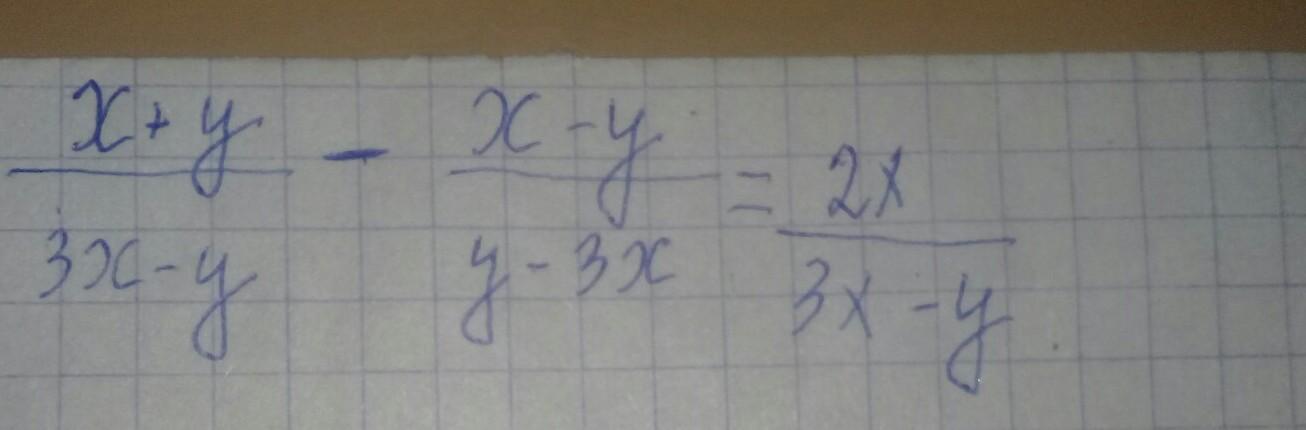 x+y / 3x-y - x-y / y-3x = 2x / 3x-y